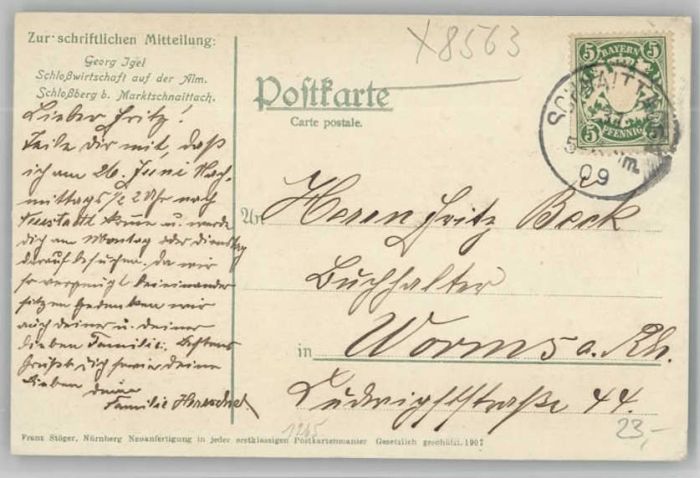 Zur schriftlichen Mitteilung:
Georg Igel
Schloßwirtschaft auf der Alm.
Schloßberg b. Marktschnaittach.
Lieber Fritz!
Teile Dir mit, daß
ich am 26. Juni Nach-
mittags 1/2 2 Uhr nach
Neustadt komme u. werde
dich am Montag oder dienstag
darauf besuchen. Da wir
so vergnügt beieinander
sitzen gedenken wir
auch deiner u. deiner
lieben Familie. Bestens
grüßt dich sowie deine
Lieben deine
Familie
X8563
Postkarte
Carte postale.
BAYERN
5 5
5 5
PFENNIG
SCHNAITTACH
09
An Herrn Fritz Beck
Buchhalter
in Worms a. Rh.
Ludwigstraße 44.
1265
23,-
Franz Stöger, Nürnberg Neuanfertigung in jeder erstklassigen Postkartenmanier Gesetzlich geschützt. 1907